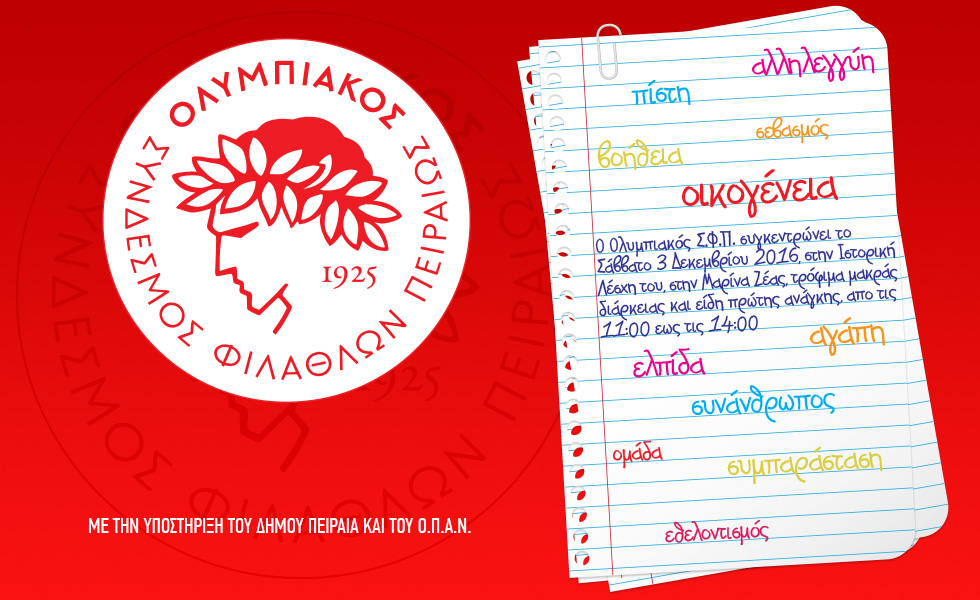 ΟΛΥΜΠΙΑΚΟΣ
ΣΥΝΔΕΣΜΟΣ ΦΙΛΑΘΛΩΝ ΠΕΙΡΑΙΩΣ
1925
ΜΕ ΤΗΝ ΥΠΟΣΤΗΡΙΞΗ ΤΟΥ ΔΗΜΟΥ ΠΕΙΡΑΙΑ ΚΑΙ ΤΟΥ Ο.Π.Α.Ν.
αλληλεγγύη
πίστη
σεβασμός
βοήθεια
οικογένεια
Ο Ολυμπιακός Σ.Φ.Π. συγκεντρώνει το
Σάββατο 3 Δεκεμβρίου 2016, στην Ιστορική
Λέσχη του, στην Μαρίνα Ζέας, τρόφιμα μακράς
διάρκειας και είδη πρώτης ανάγκης, απο τις
11:00 εως τις 14:00
αγάπη
ελπίδα
συνάνθρωπος
ομάδα
συμπαράσταση
εθελοντισμός